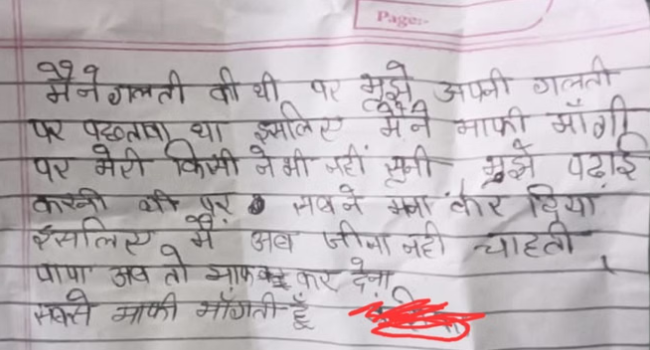 Page:-
मैंने गलती की थी पर मुझे अपनी गलती
पर पछतावा था इसलिए मैंने माफी माँगी
पर मेरी किसी ने भी नहीं सुनी मुझे पढ़ाई
करनी थी पर सब ने मना कर दिया
इसलिए मैं अब जीना नहीं चाहती
पापा अब तो माफ कर देना
सबसे माफी माँगती हूँ